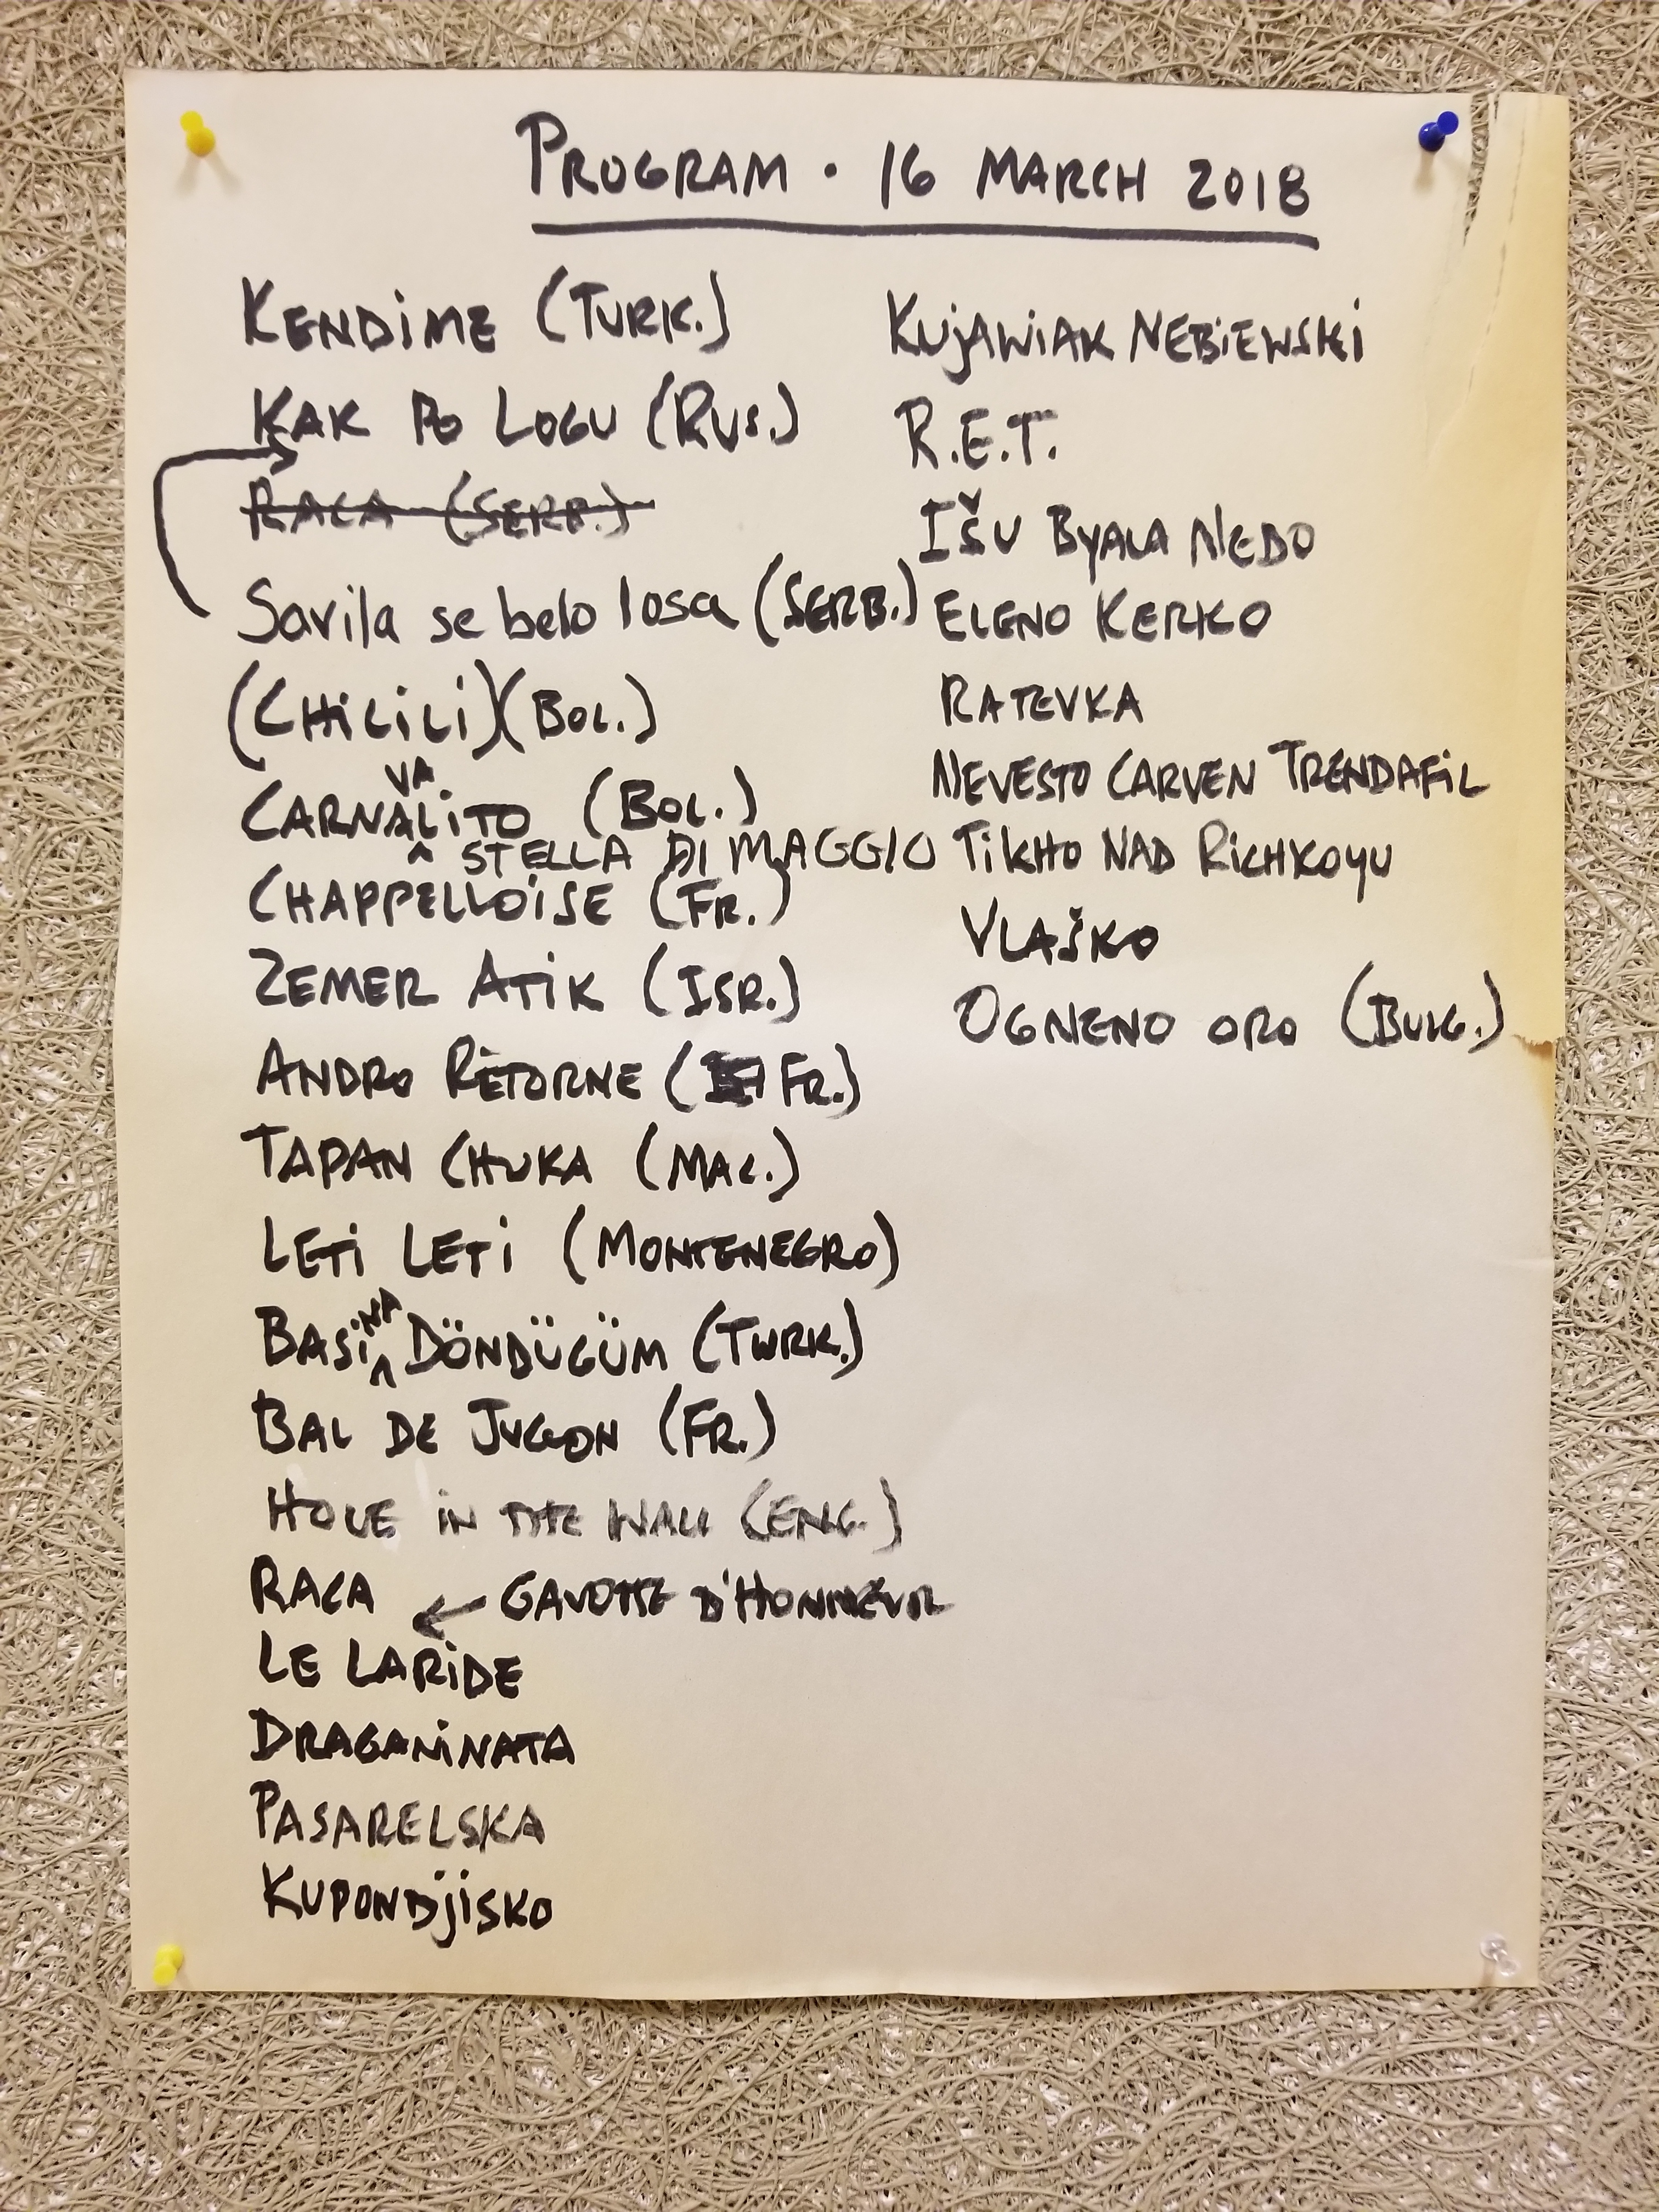 PROGRAM · 16 MARCH 2018
KENDIME (TURK.)
KAK PO LOGU (RUS.)
RACA (SERB.)
Savila se belo losa (SERB.)
(CHILILI) (BOL.)
VA
CARNALITO (BOL.)
^ STELLA DI MAGGIO
CHAPPELLOISE (FR.)
ZEMER ATIK (ISR.)
ANDRO RETORNE (FR.)
TAPAN CHUKA (MAC.)
LETI LETI (MONTENEGRO)
NA
BASI^ DÖNDÜGÜM (TURK.)
BAL DE JUGON (FR.)
HOLE IN THE WALL (ENG.)
RACA ← GAVOTTE D'HONNEUR
LE LARIDE
DRAGANINATA
PASARELSKA
KUPONDJISKO
KUJAWIAK NEBIEWSKI
R.E.T.
IŠU BYALA NEDO
ELENO KERKO
RATEVKA
NEVESTO CARVEN TRENDAFIL
TIKHO NAD RICHKOYU
VLAŠKO
OGNENO ORO (BULG.)